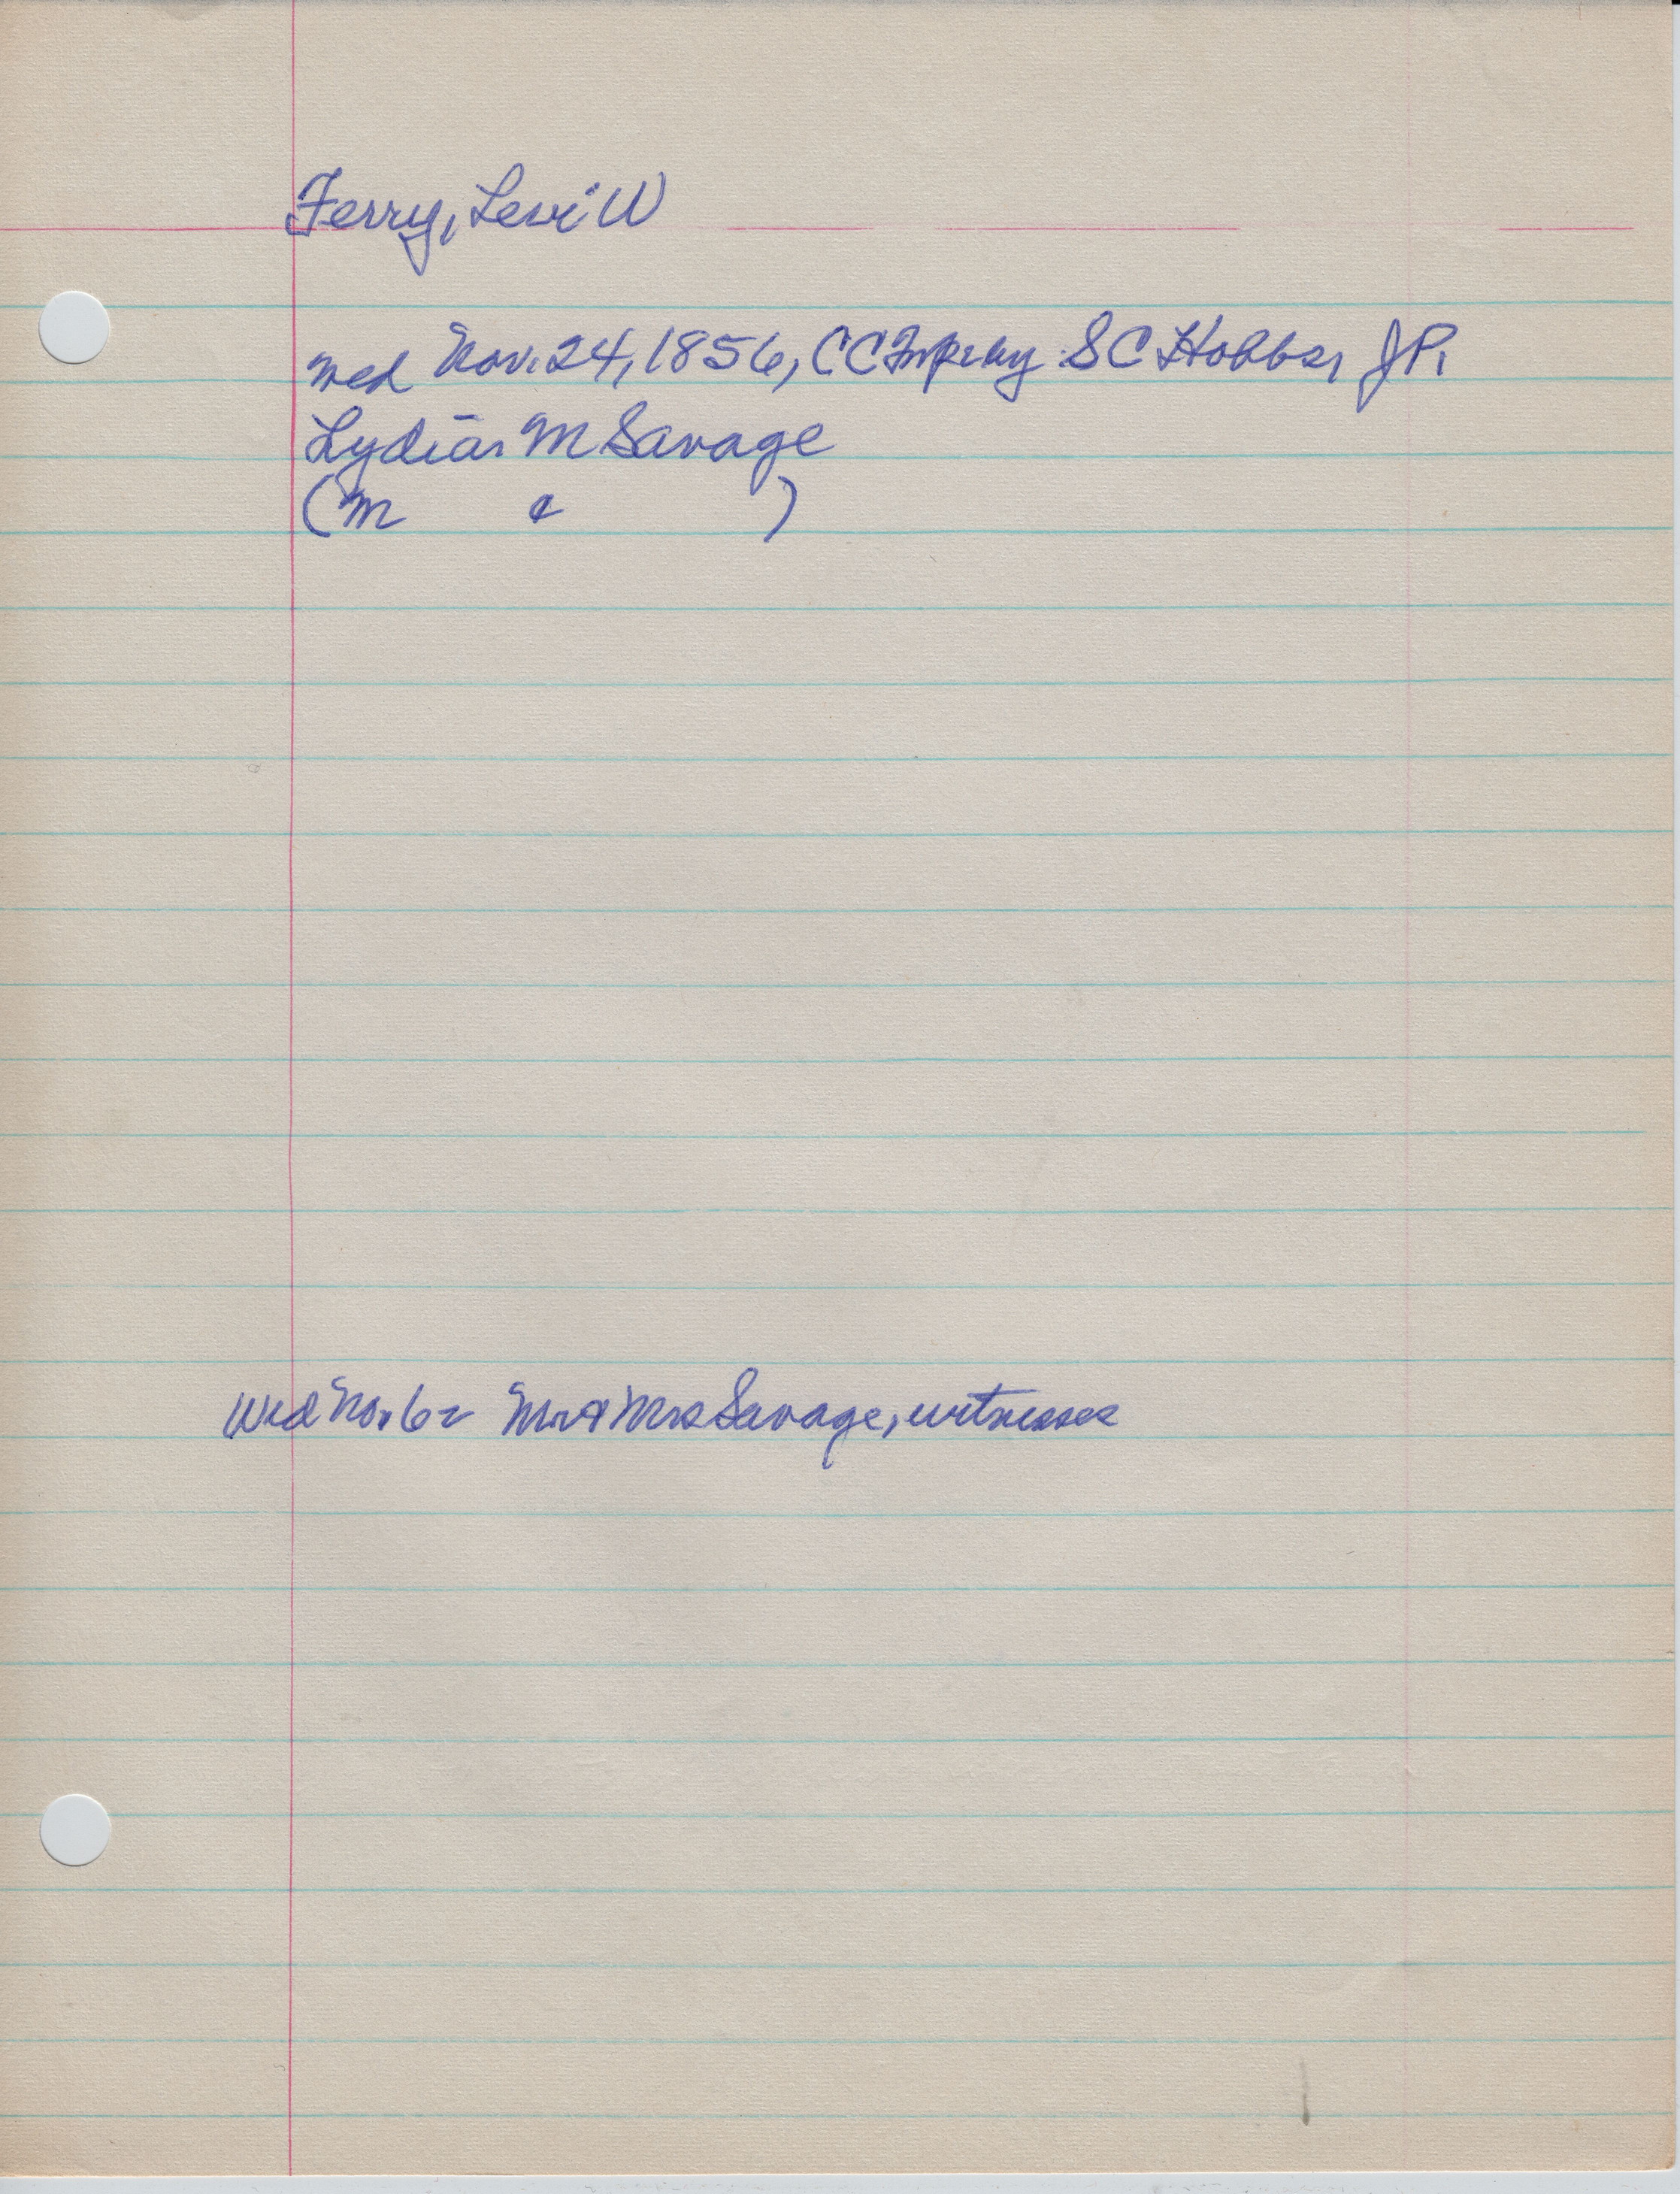 Ferry, Levi W
Wed Nov. 24, 1856, C C Imp by S C Hobbs, J P.
Lydia M Savage
(M & )
Wed No. 62 Mr & Mrs Savage, witnesses